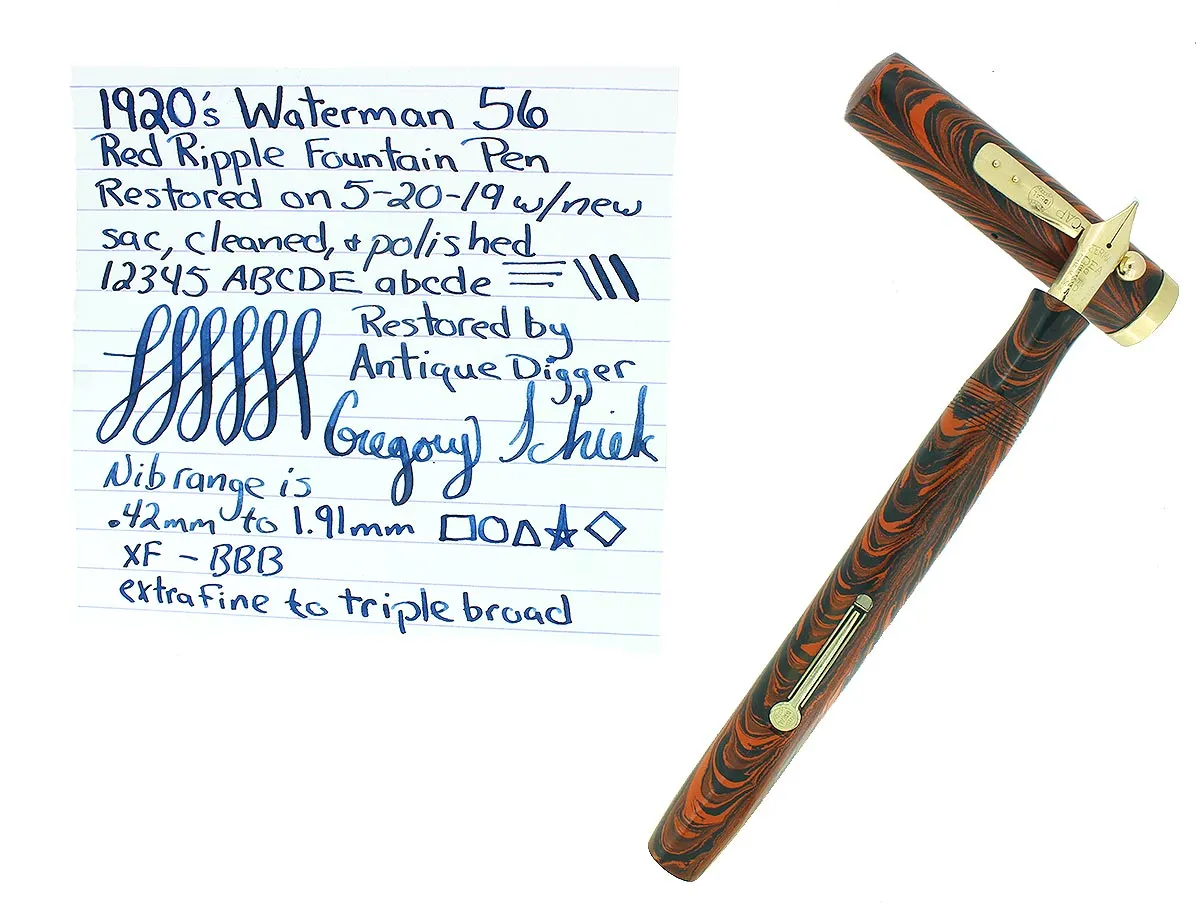 1920's Waterman 56
Red Ripple Fountain Pen
Restored on 5-20-19 w/new
sac, cleaned, & polished
12345 ABCDE abcde
Restored by
Antique Digger
Gregory Schiek
Nib range is
.42mm to 1.91mm
XF - BBB
extrafine to triple broad
CAP